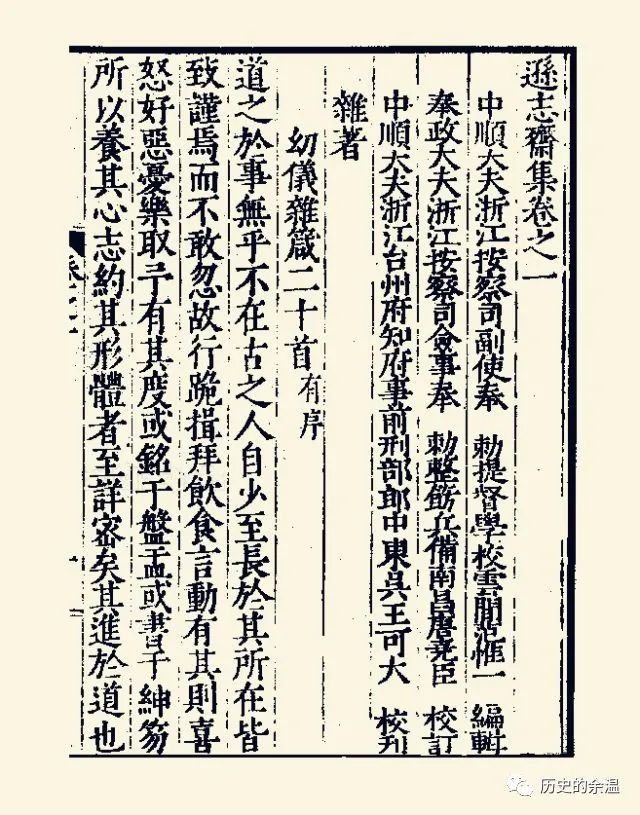 遜志齋集卷之一
中順大夫浙江按察司副使奉　勑提督學校雲間范惟一　編輯
奉政大夫浙江按察司僉事奉　勑整飭兵備南昌唐堯臣　校訂
中順大夫浙江台州府知府事前刑部郎中東吳王可大　校刊
雜著
幼儀雜箴二十首有序
道之於事無乎不在古之人自少至長於其所在皆
致謹焉而不敢忽故行跪揖拜飲食言動有其則喜
怒好惡憂樂取予有其度或銘于盤盂或書于紳笏
所以養其心志約其形體者至詳密矣其進於道也
历史的余温